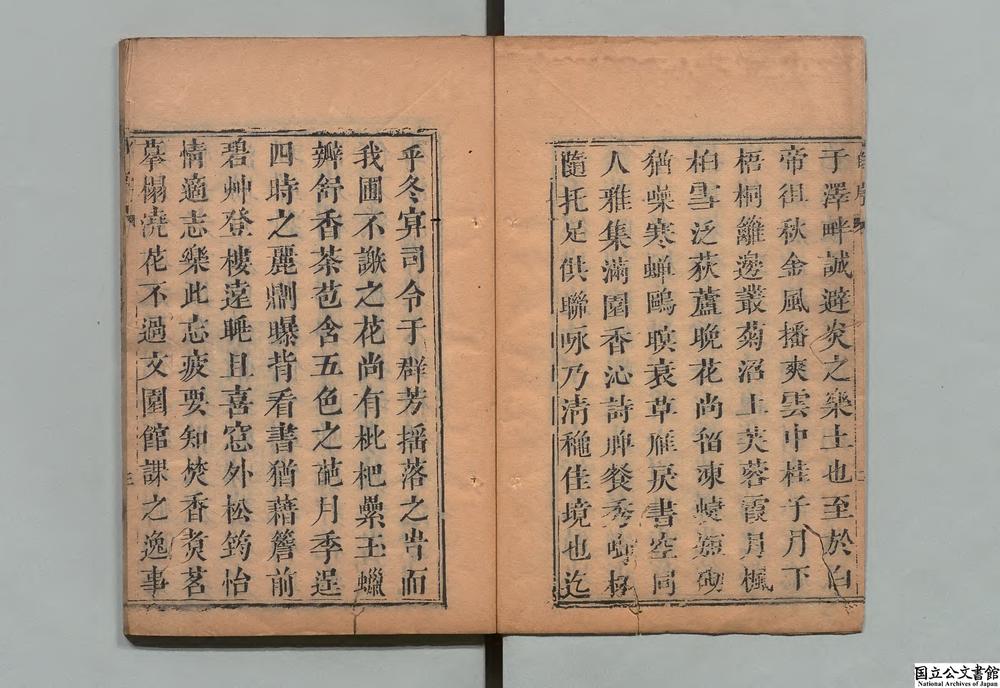 于澤畔誠避炎之樂土也至於白
帝徂秋金風播爽雲中桂子月下
梧桐籬邊叢菊沼上芙蓉霞月楓
柏雪泛荻蘆晚花尚留凍砌
猶噪寒蟬鷗暝衰草雁戾書空同
人雅集滿園香沁詩脾餐秀啣杯
隨托足供聯咏乃清穐佳境也迄
乎冬冥司令于群芳搖落之旹而
我圃不謝之花尚有枇杷纍玉蠟
瓣舒香茶苞含五色之葩月季逞
四時之麗劑曝背看書猶藉簷前
碧艸登樓遠眺且喜窓外松筠怡
情適志樂此忘疲要知焚香煑茗
摹榻澆花不過文園館課之逸事
国立公文書館
National Archives of Japan